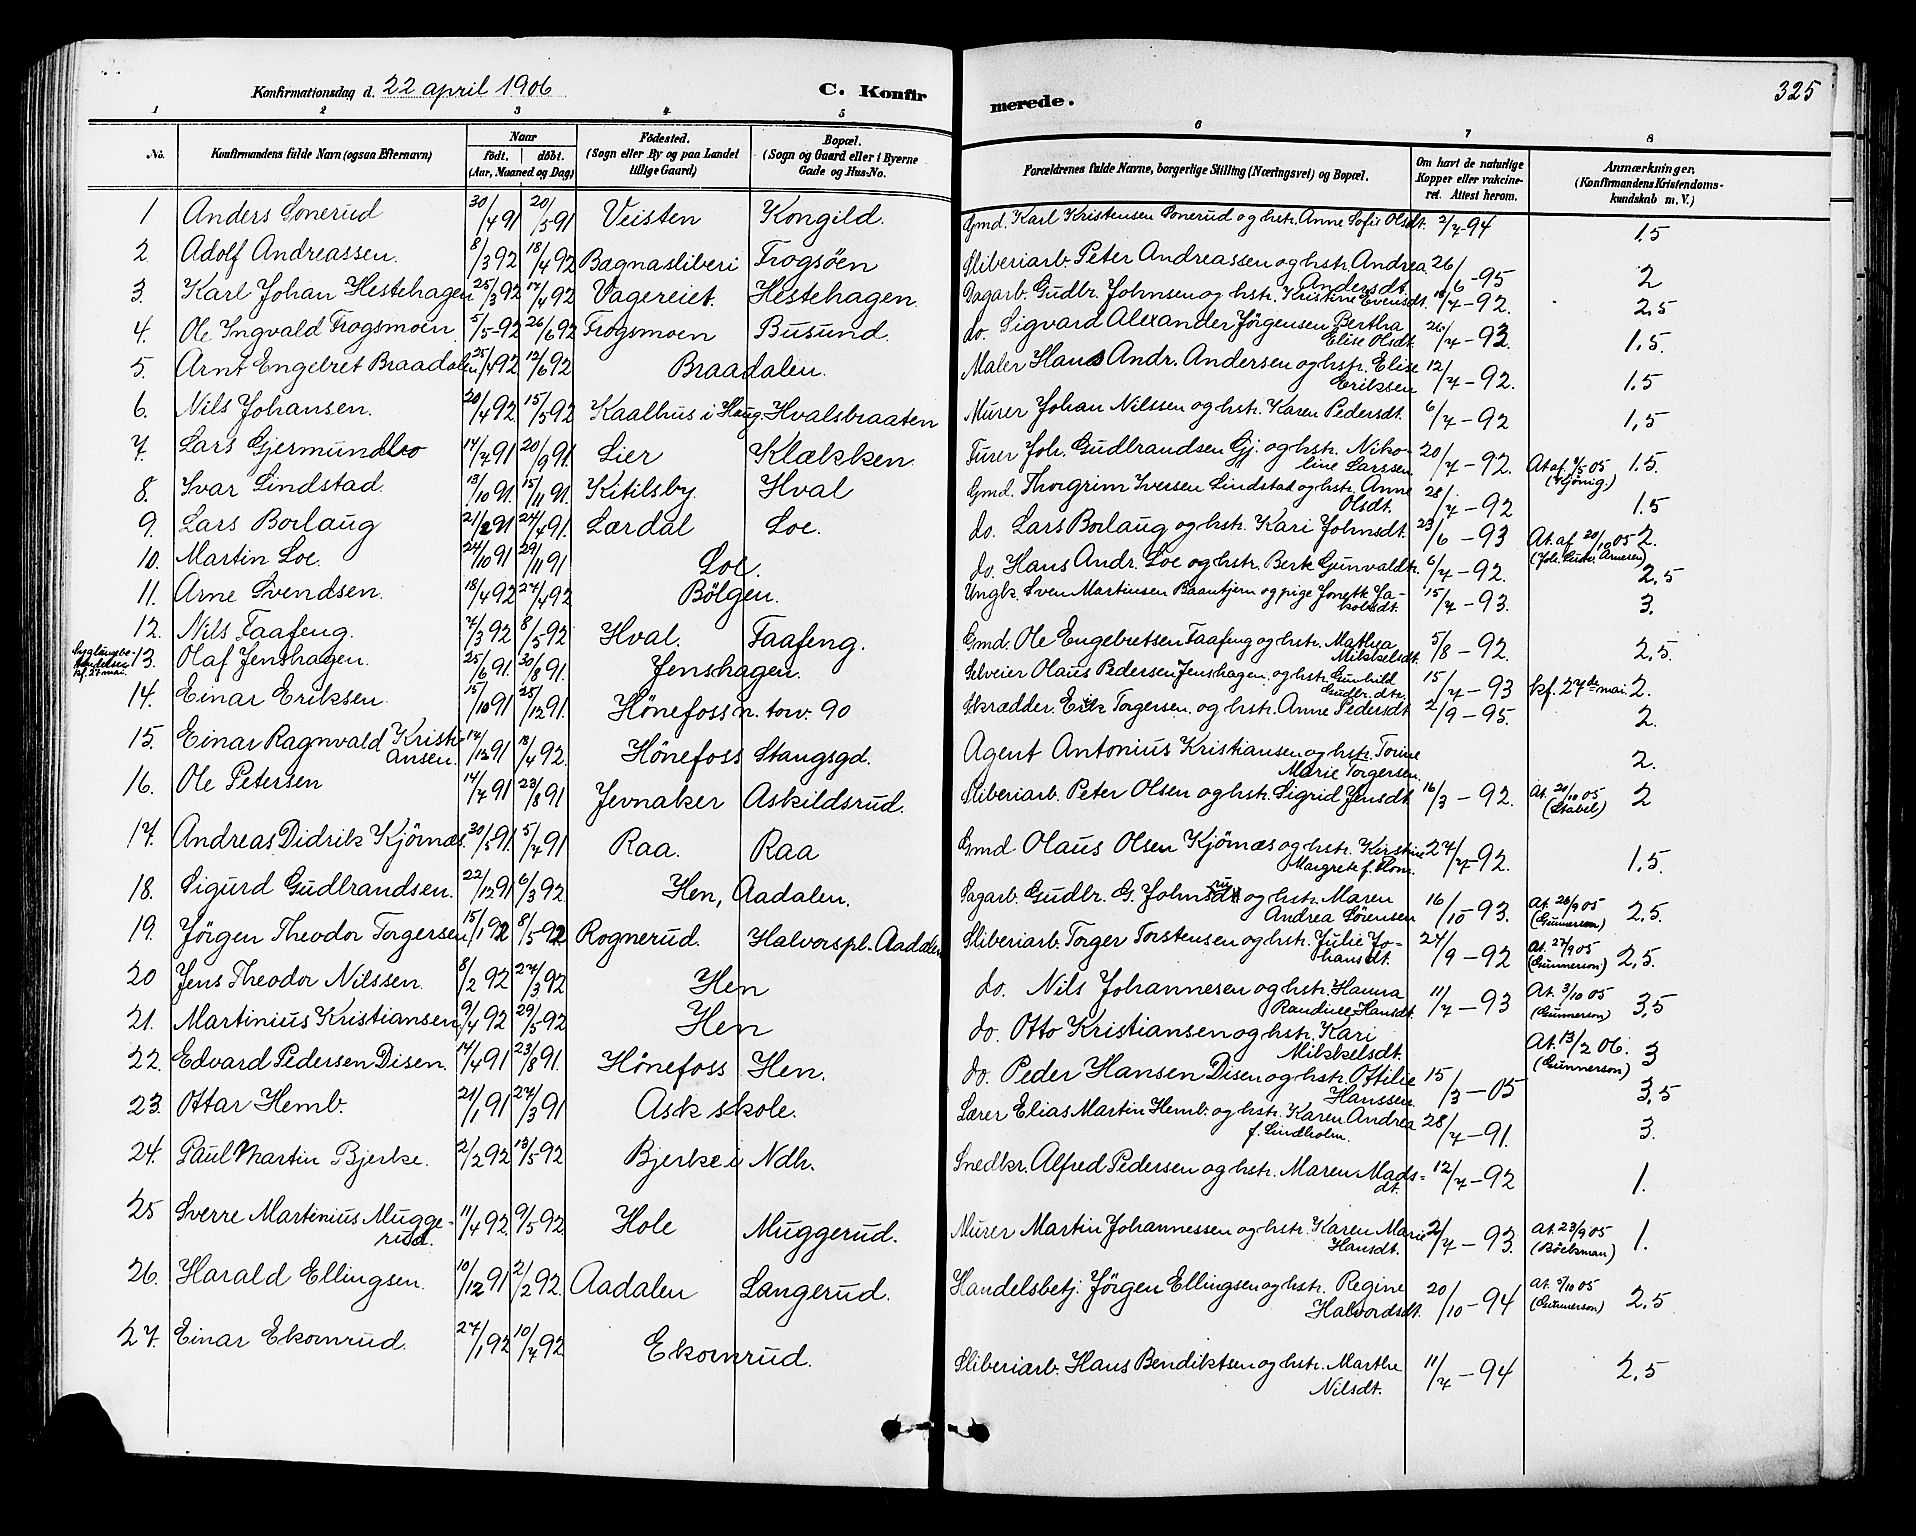 Konfirmationsdag d. 22 april 1906 C. Konfirmerede. 325
1 2 3 4 5 6 7 8
No. Konfirmandens fulde Navn (ogsaa Efternavn) Naar født. døbt. (Aar, Maaned og Dag) Fødested. (Sogn eller By og paa Landet tillige Gaard) Bopæl. (Sogn og Gaard eller i Byerne Gade og Hus-No. Forældrenes fulde Navne, borgerlige Stilling (Næringsvei) og Bopæl. Om havt de naturlige Kopper eller vakcineret. Attest herom. Anmærkninger. (Konfirmandens Kristendomskundskab m. V.)
1 Anders Sonerud 30/4 91 20/5 91 Veisten Kongild. Gmd. Karl Kristensen Sonerud og hstr. Anne Sofie Olsdt. 2/7-94 1.5
2 Adolf Andreassen. 8/3 92 18/4 92 Bagnasliberi Frogsøen Sliberiarb. Peter Andreassen og hstr. Andrea Andersdt. 26/6-95 2
3. Karl Johan Hestehagen 25/3 92 17/4 92 Vagereiet. Hestehagen Dagarb. Gudbr. Johnsen og hstr. Kristine Evensdt. 18/7-92. 2,5
4. Ole Ingvald Frogsmoen 5/5-92 26/6 92 Frogsmoen Busund. do. Sigvard Alexander Jørgensen Bertha Elise Olsdt. 26/7-93. 1,5.
5. Arnt Engebret Braadalen 25/4 92 12/6 92 Braadalen. Maler Hans Andr. Andersen og hstr. Elise Eriksen 12/7-92. 1.5
6. Nils Johansen. 20/4 92 15/5 92 Kaalhus i Haug. Hvalsbraaten Murer Johan Nilssen og hstr. Karen Pedersdt. 6/7-92 1,5
7. Lars Gjermundbo 14/7 91 20/9 91. Lier Klækken. Furer Joh. Gudbrandsen Gj. og hstr. Nikoline Larssen 20/7-92. At. af 2/5 05 1.5.
8. Ivar Lindstad. 13/10 91. 15/11 91. Kitilsby. Hval Gmd. Thorgrim Iversen Lindstad og hstr. Anne Olsdt. 28/7-92 1.5
9. Lars Borlaug 21/2 91 24/4 91. Lærdal Loe. do. Lars Borlaug og hstr. Kari Johnsdt. 23/6-93 At. af 20/10 05 2.
10. Martin Loe. 24/10 91 29/11 91 Loe. do. Hans Andr. Loe og hstr. Berte Gunvaldtr. 6/7-92. 2,5
11. Arne Svendsen. 18/4 92 27/4 92 Bølgen. Ungk. Sven Martinsen Baantjern og pige Jonette Jakobsdt. 15/7-93. 3.
12. Nils Faafeng. 7/3 92 8/5 92 Hval. Faafeng. Gmd. Ole Engebretsen Faafeng og hstr. Mathea Mikkelsdt. 5/8-92. 2,5.
13. Olaf Jenshagen. 25/6 91. 30/8 91. Jenshagen. Selveier Olaus Pedersen Jenshagen. og hstr. Gunhild Gudbr.dtr. 15/7-93 kf. 27de mai. 2.
14. Einar Eriksen. 15/10 91 25/12 91. Hønefoss n. torv. 90 Skrædder. Erik Torgersen. og hstr. Anne Pedersdt. 2/9-95. 2.
15. Einar Ragnvald Kristiansen. 17/12 91 18/4 92. Hønefoss Stangsgd. Agent Antonius Kristiansen og hstr. Torine Marie Torgersen. 2.
16. Ole Petersen 14/7 91 23/8 91 Jevnaker Askildsrud. Sliberiarb. Peter Olsen og hstr. Sigrid Jensdt. 16/3-92. At. 20/10 05 (Stabel) 2
17. Andreas Didrik Kjørnæs. 30/5 91. 5/7 91 Raa. Raa Gmd Olaus Olsen Kjørnæs og hstr. Kerstine Margrete f. Thon. 27/7-92. 1.5.
18. Sigurd Gudbrandsen. 22/12 91 6/3 92. Hen, Aadalen. Sagarb. Gudbr. G. Johnsrud og hstr. Maren Andrea Sørensen 16/10-93. At. 28/9 05 (Gunnerson) 2,5.
19. Jørgen Theodor Torgersen 15/1 92 8/5 92 Rognerud. Halvorspl. Aadalen Sliberiarb. Torger Torstensen og hstr. Julie Johansdt. 24/9-92 At. 27/9 05 (Gunnerson) 2,5.
20 Jens Theodor Nilssen. 8/2 92 27/3 92 Hen do. Nils Johannesen og hstr. Hanna Randine Hansdt. 11/7-93 At. 3/10 05 (Gunnerson) 3,5
21. Martinius Kristiansen 9/4 92 29/5 92 Hen do. Otto Kristiansen og hstr. Kari Mikkelsdt. At. 13/2 06. (Gunnerson) 3
22. Edvard Pedersen Disen. 14/4 91 23/8 91. Hønefoss Hen. do. Peder Hansen Disen og hstr. Ottilie Hanssen. 15/3-05 3,5
23. Ottar Hemb. 21/1 91 27/3 91 Ask skole. Lærer Elias Martin Hemb. og hstr. Karen Andrea f. Lindholm. 28/7-91. 3.
24. Paul Martin Bjerke. 2/2 92 13/5 92 Bjerke i Ndh. Snedkr. Alfred Pedersen og hstr. Maren Madsdt. 12/7-92 1.
25 Sverre Martinius Muggerud. 11/4 92. 9/5 92. Hole Muggerud. Murer Martin Johannessen og hstr. Karen Marie Hansdt. 2/7-93. At. 23/9 05 (Böckman) 1.
26. Harald Ellingsen. 10/12 91 2/2 92. Aadalen Langerud. Handelsbetj. Jørgen Ellingsen og hstr. Regine Halvordsdt. 20/10-94 at. 5/10 05 (Gunnerson) 2,5
27. Einar Ekornrud. 27/1 92 10/7 92 Ekornrud. Sliberiarb. Hans Bendiktsen og hstr. Marthe Nilsdt. 11/7-94 2,5